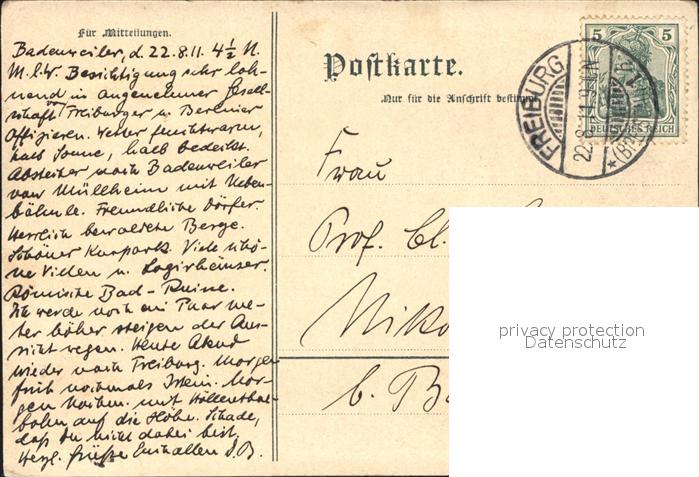 Für Mitteilungen.
Badenweiler, d. 22.8.11. 4½ N.
M. l. Besichtigung sehr loh-
nend in angenehmer Gesell-
schaft von Freiburger u. Berliner
Offizieren. Wetter feuchtwarm,
halb Sonne, halb bedeckt.
Abstecher nach Badenweiler
von Müllheim mit Neben-
bähnle. Freundliche Dörfer.
Herrlich bewaldete Berge.
Schöner Kurpark. Viele schö-
ne Villen u. Logirhäuser.
Römische Bad-Ruine.
Ich werde noch ein Paar me-
ter höher steigen der Aus-
sicht wegen. Heute Abend
wieder nach Freiburg. Morgen
früh nochmals Istein. Mor-
gen Nachm. mit Höllenthal-
bahn auf die Höhe. Schade,
daß Du nicht dabei bist.
Herzl. Grüße Euch allen D. B.
Postkarte.
Nur für die Anschrift bestimmt
5 5
DEUTSCHES REICH
FREIBURG
22.8.11. 9-10N
* (BREISGAU) 1
Frau
Prof. Cl.
Niko
b. B
privacy protection
Datenschutz